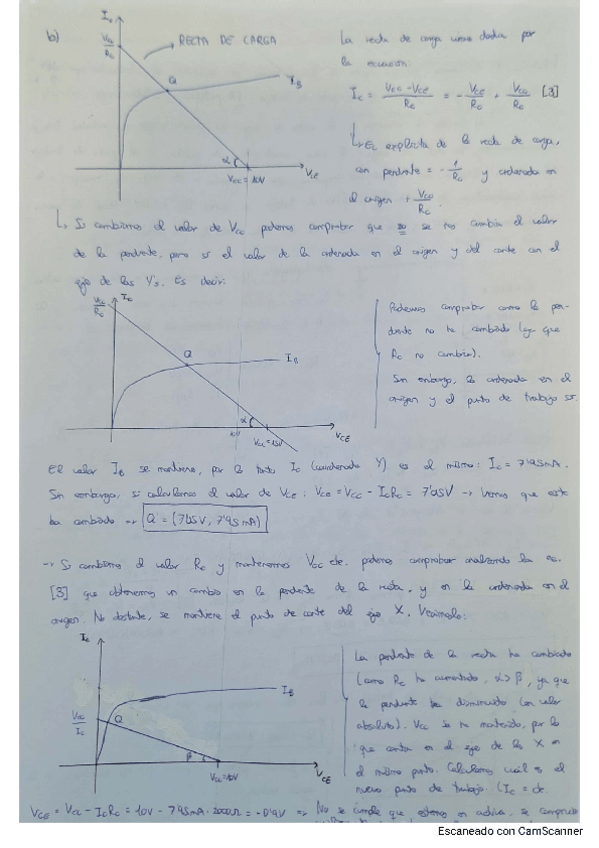 b)
I_c
V_cc/R_c
RECTA DE CARGA
Q
I_B
α
V_cc = 10V
V_CE
La recta de carga viene dada por
la ecuación:
I_c = (V_cc - V_CE)/R_c = - V_CE/R_c + V_cc/R_c [3]
↳ Ec explícita de la recta de carga,
con pendiente = - 1/R_c y ordenada en
el origen + V_cc/R_c.
↳ Si cambiamos el valor de V_cc podemos comprobar que no se nos cambia el valor
de la pendiente, pero sí el valor de la ordenada en el origen y del corte con el
eje de las Y's. Es decir:
V_cc/R_c
I_c
Q
I_B
α
10V
V_cc = 15V
V_CE
Podemos comprobar como la pen-
diente no ha cambiado (ya que
R_c no cambia).
Sin embargo, la ordenada en el
origen y el punto de trabajo sí.
El valor I_B se mantiene, por lo tanto I_c (coordenada Y) es el mismo: I_c = 7'95mA.
Sin embargo, si calculamos el valor de V_CE: V_CE = V_cc - I_cR_c = 7'05V → Vemos que este
ha cambiado → Q' = (7'05V, 7'95mA)
→ Si cambiamos el valor R_c y mantenemos V_cc cte. podemos comprobar analizando la ec.
[3] que obtenemos un cambio en la pendiente de la recta, y en la ordenada en el
origen. No obstante, se mantiene el punto de corte del eje X. Veámoslo:
I_c
V_cc/I_c
Q
I_B
β
V_cc = 10V
V_CE
La pendiente de la recta ha cambiado
(como R_c ha aumentado, α > β, ya que
la pendiente ha disminuido (en valor
absoluto). V_cc se ha mantenido, por lo
que corta en el eje de las X en
el mismo punto. Calculamos cuál es el
nuevo punto de trabajo. (I_c = cte.
V_CE = V_cc - I_cR_c = 10V - 7'95mA · 2000Ω = -0'9V ⇒ No se cumple que estemos en activa, se
Escaneado con CamScanner